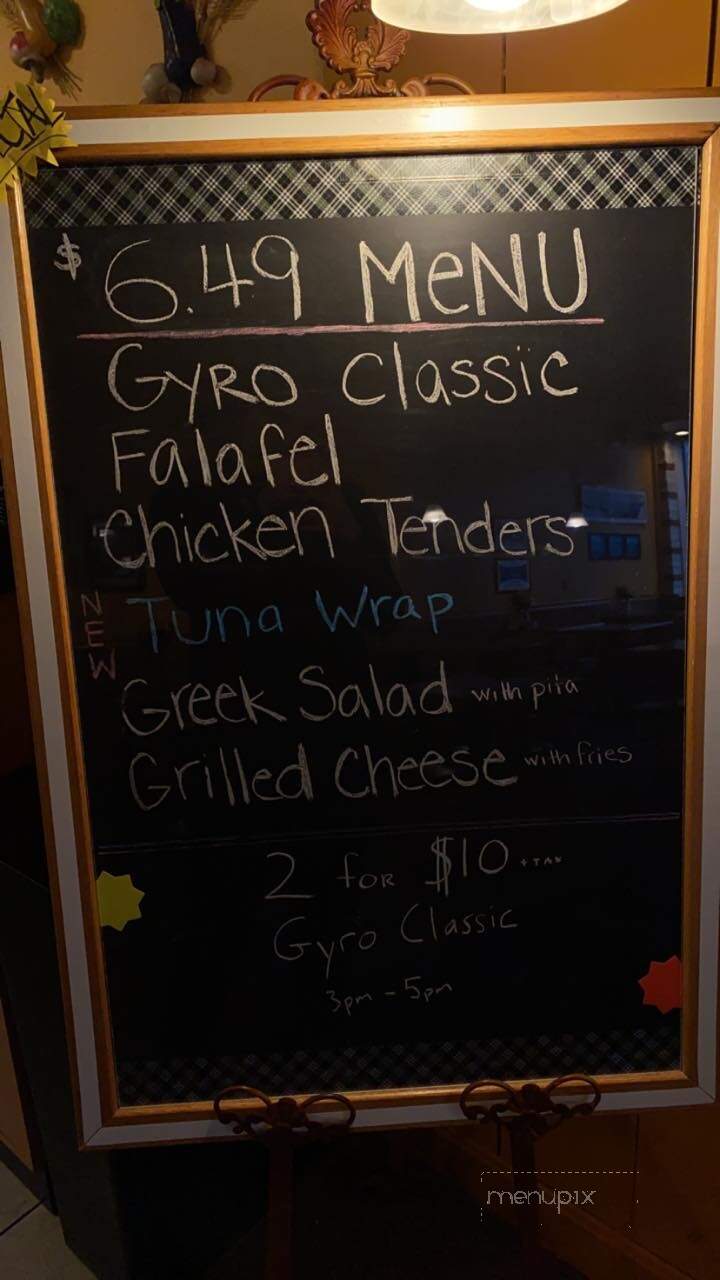 $6.49 MeNU
GyRO Classic
Falafel
Chicken Tenders
NEW Tuna Wrap
Greek Salad with pita
Grilled Cheese with fries
2 foR $10 + TAX
Gyro Classic
3pm - 5pm
menupix